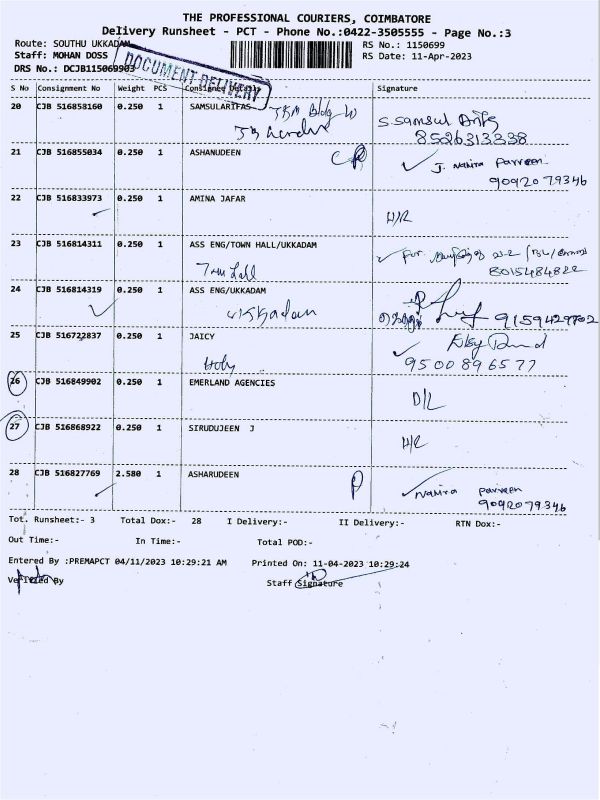 THE PROFESSIONAL COURIERS, COIMBATORE
Delivery Runsheet - PCT - Phone No.:0422-3505555 - Page No.:3
Route: SOUTHU UKKADAM RS No.: 1150699
Staff: MOHAN DOSS RS Date: 11-Apr-2023
DRS No.: DCJB115069903
DOCUMENT DELIVERY
S No Consignment No Weight PCS Consignee Details Signature
20 CJB 516858160 0.250 1 SAMSULARIFAS TKM Bldg
S. Samsul
8526313338
21 CJB 516855034 0.250 1 ASHANUDEEN J. Nahira Parveen
9092079346
22 CJB 516833973 0.250 1 AMINA JAFAR
H/R
23 CJB 516814311 0.250 1 ASS ENG/TOWN HALL/UKKADAM For
8015484822
24 CJB 516814319 0.250 1 ASS ENG/UKKADAM
Ukkadam 9159429702
25 CJB 516722837 0.250 1 JAICY
9500896577
26 CJB 516849902 0.250 1 EMERLAND AGENCIES
D/L
27 CJB 516868922 0.250 1 SIRUDUJEEN J
H/R
28 CJB 516827769 2.580 1 ASHARUDEEN P
Nahira Parveen
9092079346
Tot. Runsheet:- 3 Total Dox:- 28 I Delivery:- II Delivery:- RTN Dox:-
Out Time:- In Time:- Total POD:-
Entered By :PREMAPCT 04/11/2023 10:29:21 AM Printed On: 11-04-2023 10:29:24
Verified By Staff Signature